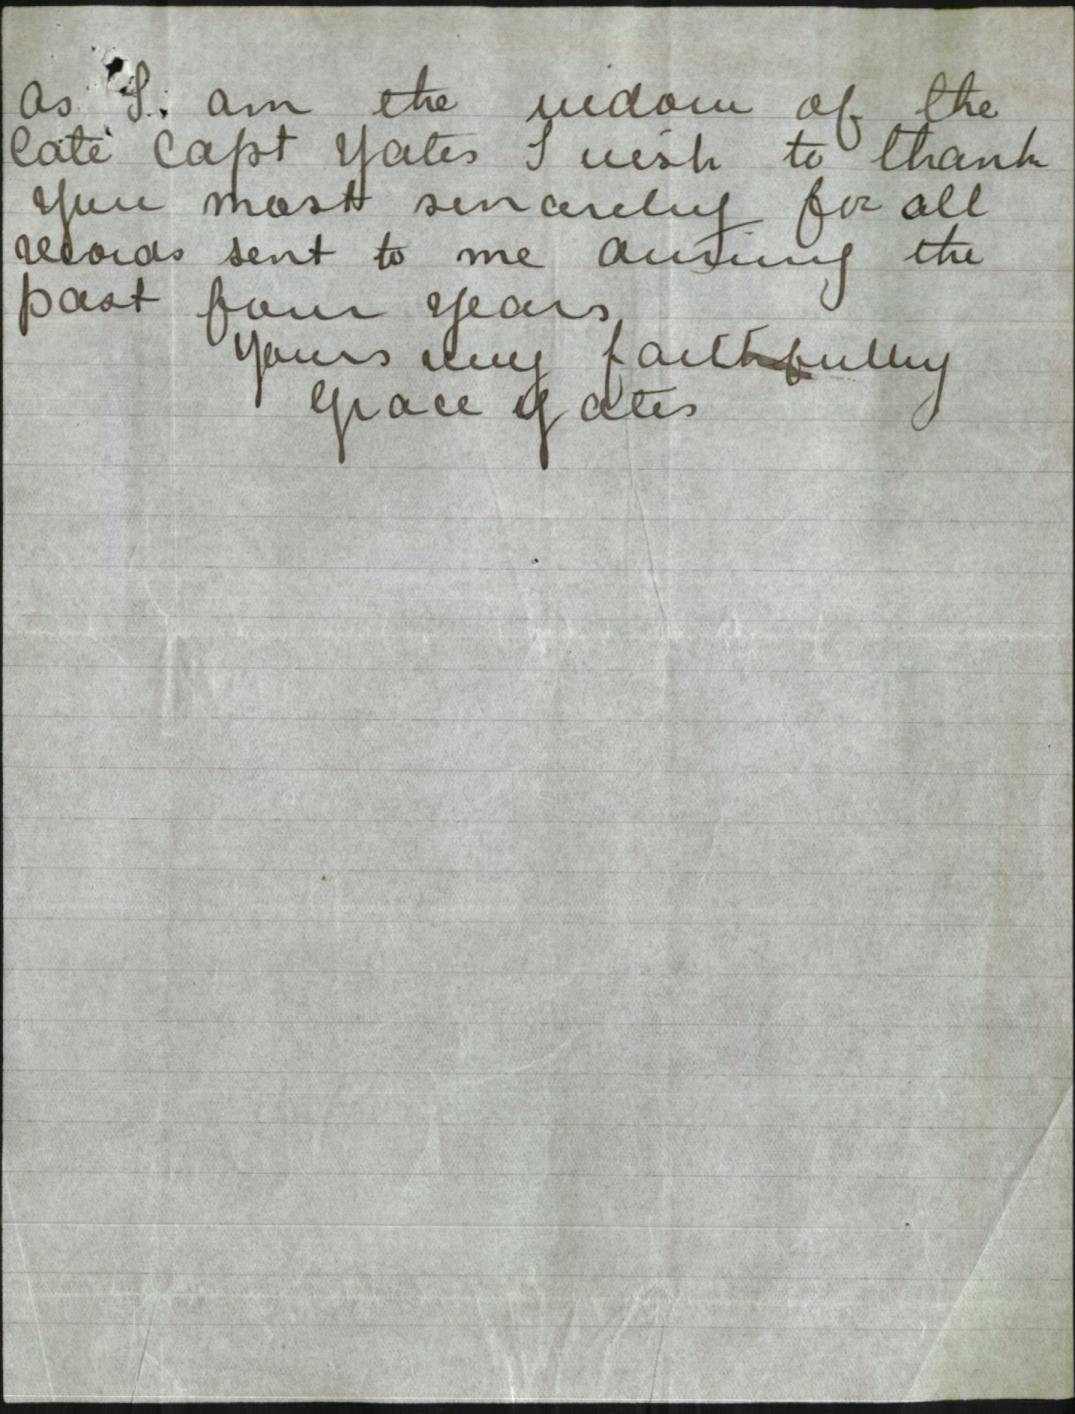 as I am the widow of the
late Capt Yates I wish to thank
you most sincerely for all
records sent to me during the
past four years
Yours very faithfully
Grace Yates